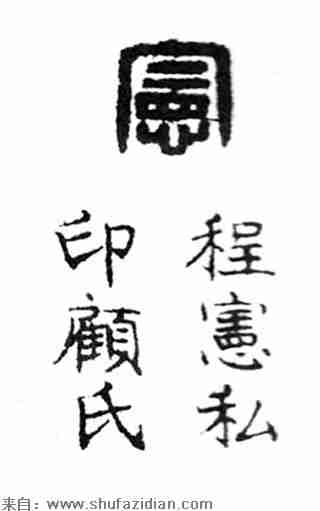 憲
程憲私
印顧氏
来自：www.shufazidian.com